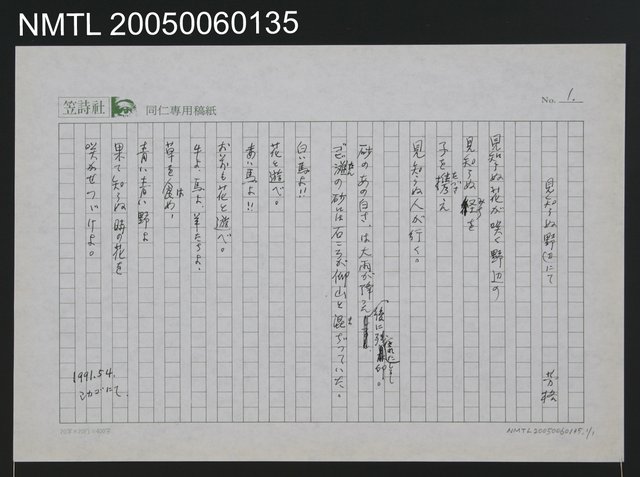 NMTL 20050060135
笠詩社
同仁専用稿紙
No. 1.
見知らぬ野辺にて
見知らぬ花が咲く野辺の
見知らぬ
子を
見知らぬ人が行く。
砂のあの白さ、は大雨が降
ご灘の砂には石ころが仰山と混じっていた。
白い馬よ!!
花と遊べ。
青い馬よ!!
おまえも花と遊べ。
牛よ、馬よ、羊たちよ、
草を食め、
青い青い野よ
果て知らぬ時の花を
咲かせつづけよ。
1991.5.4.
にて
NMTL20050060135. 1/1